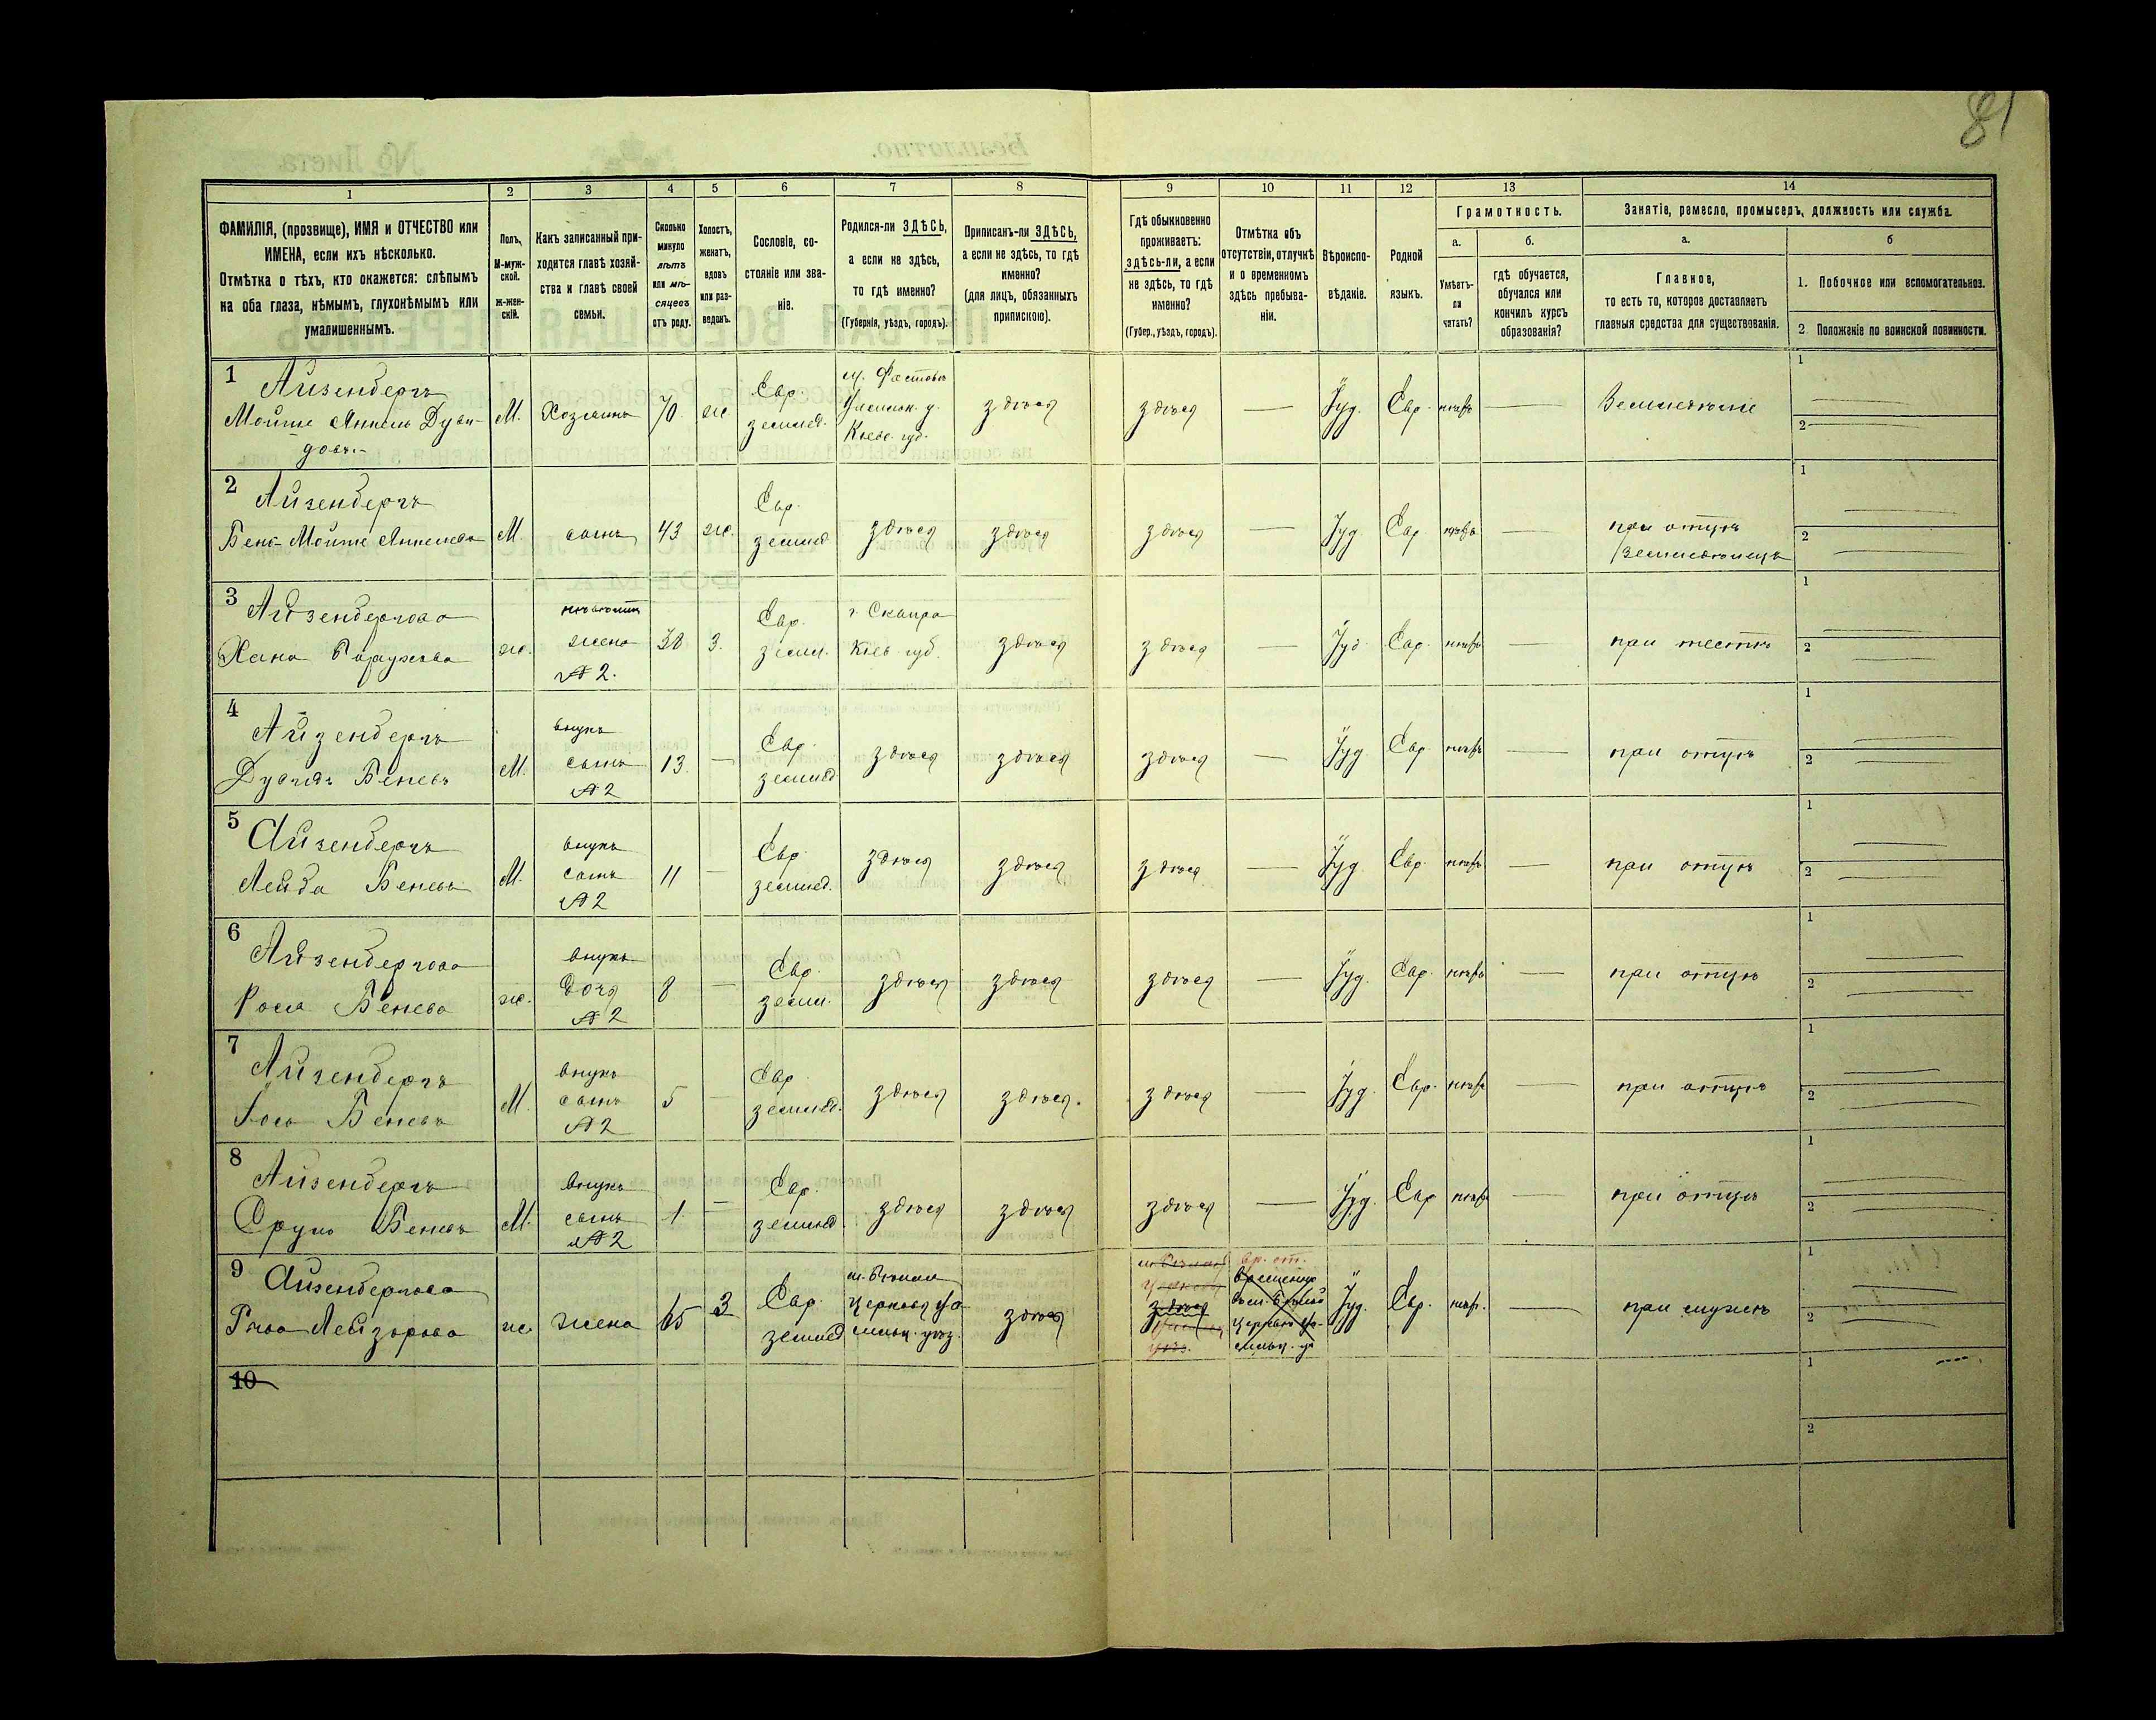 81
1
2
3
4
5
6
7
8
9
10
11
12
13
14
ФАМИЛІЯ, (прозвище), ИМЯ и ОТЧЕСТВО или
ИМЕНА, если ихъ нѣсколько.
Отмѣтка о тѣхъ, кто окажется: слѣпымъ
на оба глаза, нѣмымъ, глухонѣмымъ или
умалишеннымъ.
Полъ,
М-муж-
ской.
ж-жен-
скій.
Какъ записанный при-
ходится главѣ хозяй-
ства и главѣ своей
семьи.
Сколько
минуло
лѣтъ
или мѣ-
сяцевъ
отъ роду.
Холостъ,
женатъ,
вдовъ
или раз-
веденъ.
Сословіе, со-
стояніе или зва-
ніе.
Родился-ли ЗДѢСЬ,
а если не здѣсь,
то гдѣ именно?
(Губернія, уѣздъ, городъ).
Приписанъ-ли ЗДѢСЬ,
а если не здѣсь, то гдѣ
именно?
(для лицъ, обязанныхъ
припискою).
Гдѣ обыкновенно
проживаетъ:
здѣсь-ли, а если
не здѣсь, то гдѣ
именно?
(Губер., уѣздъ, городъ).
Отмѣтка объ
отсутствіи, отлучкѣ
и о временномъ
здѣсь пребыва-
ніи.
Вѣроиспо-
вѣданіе.
Родной
языкъ.
Грамотность.
а.
Умѣетъ-
ли
читать?
б.
гдѣ обучается,
обучался или
кончилъ курсъ
образованія?
Занятіе, ремесло, промыселъ, должность или служба.
а.
Главное,
то есть то, которое доставляетъ
главныя средства для существованія.
б
1. Побочное или вспомогательное.
2 Положеніе по воинской повинности.
1
Айзенбергъ
Мойше
М. Хозяинъ 70 ж.
Евр.
землед.
м. Фастовъ
Кіев. губ.
здѣсь
здѣсь
—
Іуд. Евр.
—
1
2
2
Айзенбергъ
Бень Мойше
М. сынъ 43 ж.
Евр.
землед.
здѣсь здѣсь здѣсь — Іуд. Евр —
при отцѣ
1
2
3
Айзенбергова
Хана
ж.
жена
№ 2.
38 З.
Евр.
земл.
г. Сквира
Кіев. губ.
здѣсь здѣсь — Іуд. Евр. —
при тестѣ
1
2
4
Айзенбергъ
Беневъ
М.
внукъ
сынъ
№ 2
13. —
Евр.
землед
здѣсь здѣсь здѣсь — Іуд. Евр. —
при отцѣ
1
2
5
Айзенбергъ
Лейба Беневъ
М.
внукъ
сынъ
№ 2
11 —
Евр.
землед.
здѣсь здѣсь здѣсь — Іуд. Евр. —
при отцѣ
1
2
6
Айзенбергова
Бенева
ж.
внука
дочь
№ 2
8 —
Евр.
земл.
здѣсь здѣсь здѣсь — Іуд. Евр. —
при отцѣ
1
2
7
Айзенбергъ
Беневъ
М.
внукъ
сынъ
№ 2
5 —
Евр
землед.
здѣсь здѣсь. здѣсь — Іуд. Евр. —
при отцѣ
1
2
8
Айзенбергъ
Сруль Беневъ
М.
внукъ
сынъ
№ 2
1 —
Евр.
землед
здѣсь здѣсь здѣсь — Іуд. Евр —
при отцѣ
1
2
9
Айзенбергова
Лейзорова
ж. жена 65 З
Евр.
землед
Церковь
здѣсь
здѣсь
временно
Іуд. Евр. —
при мужѣ
1
2
10
1
2